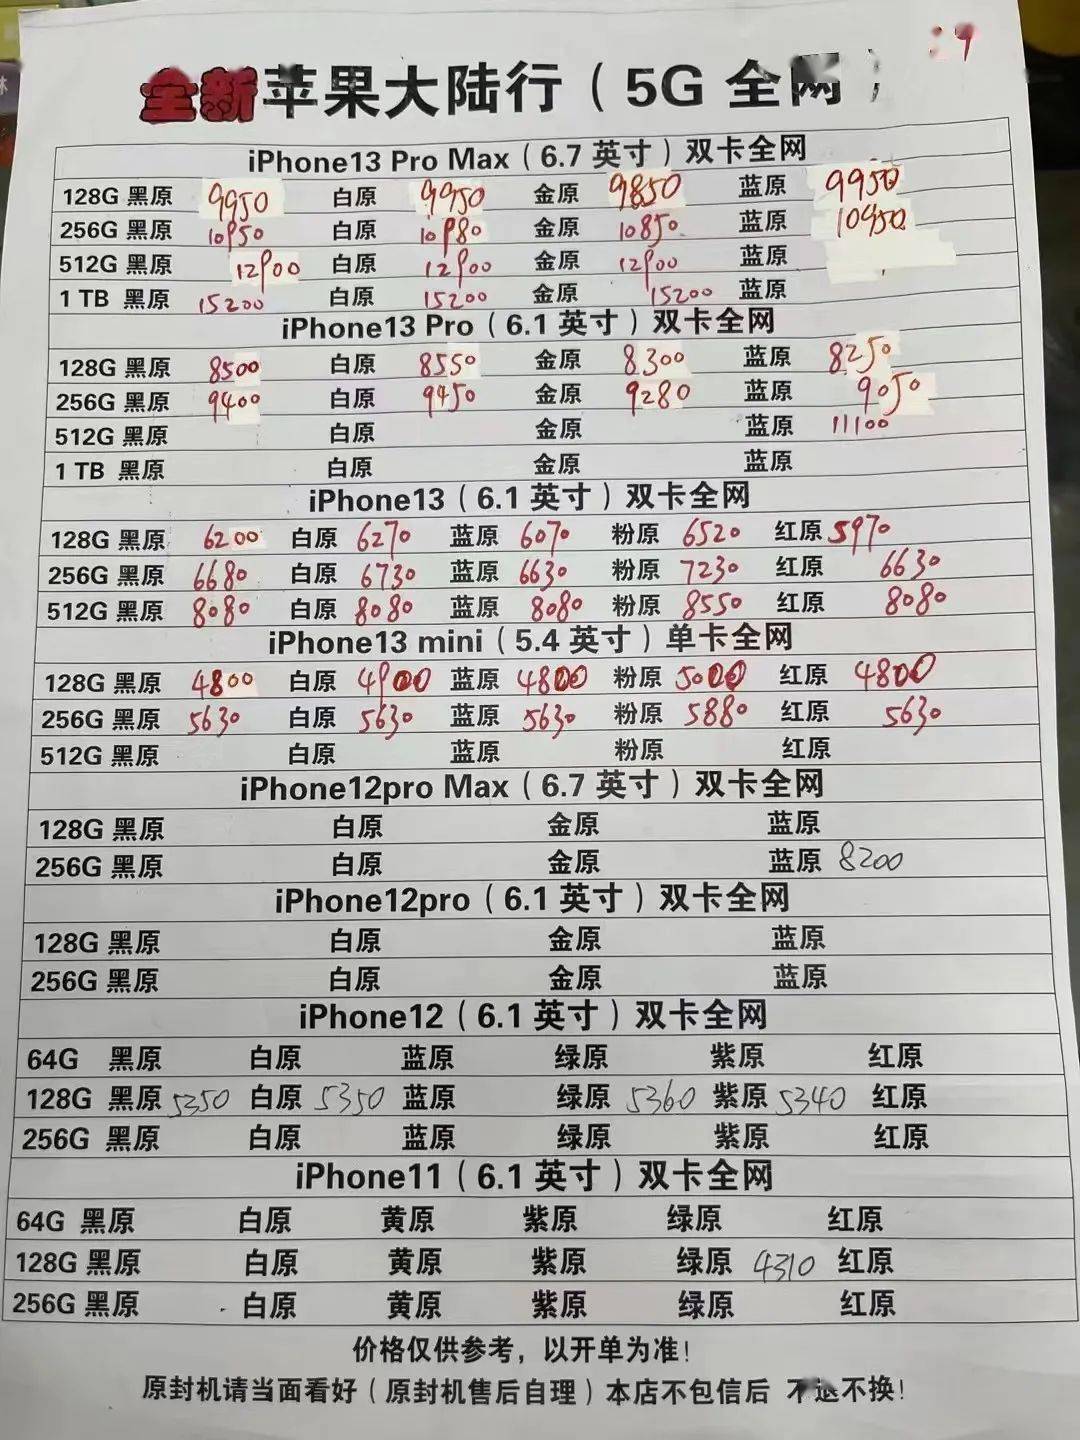 :9
全新苹果大陆行（5G 全网）
iPhone13 Pro Max（6.7 英寸）双卡全网
128G 黑原 9950 白原 9950 金原 9850 蓝原 9950
256G 黑原 10950 白原 10980 金原 10850 蓝原 10950
512G 黑原 12900 白原 12900 金原 12900 蓝原
1 TB 黑原 15200 白原 15200 金原 15200 蓝原
iPhone13 Pro（6.1 英寸）双卡全网
128G 黑原 8500 白原 8550 金原 8300 蓝原 8250
256G 黑原 9400 白原 9450 金原 9280 蓝原 9050
512G 黑原 白原 金原 蓝原 11100
1 TB 黑原 白原 金原 蓝原
iPhone13（6.1 英寸）双卡全网
128G 黑原 6200 白原 6270 蓝原 6070 粉原 6520 红原 5970
256G 黑原 6680 白原 6730 蓝原 6630 粉原 7230 红原 6630
512G 黑原 8080 白原 8080 蓝原 8080 粉原 8550 红原 8080
iPhone13 mini（5.4 英寸）单卡全网
128G 黑原 4800 白原 4900 蓝原 4800 粉原 5000 红原 4800
256G 黑原 5630 白原 5630 蓝原 5630 粉原 5880 红原 5630
512G 黑原 白原 蓝原 粉原 红原
iPhone12pro Max（6.7 英寸）双卡全网
128G 黑原 白原 金原 蓝原
256G 黑原 白原 金原 蓝原 8200
iPhone12pro（6.1 英寸）双卡全网
128G 黑原 白原 金原 蓝原
256G 黑原 白原 金原 蓝原
iPhone12（6.1 英寸）双卡全网
64G 黑原 白原 蓝原 绿原 紫原 红原
128G 黑原 5350 白原 5350 蓝原 绿原 5360 紫原 5340 红原
256G 黑原 白原 蓝原 绿原 紫原 红原
iPhone11（6.1 英寸）双卡全网
64G 黑原 白原 黄原 紫原 绿原 红原
128G 黑原 白原 黄原 紫原 绿原 4310 红原
256G 黑原 白原 黄原 紫原 绿原 红原
价格仅供参考，以开单为准！
原封机请当面看好（原封机售后自理）本店不包信后 不退不换！